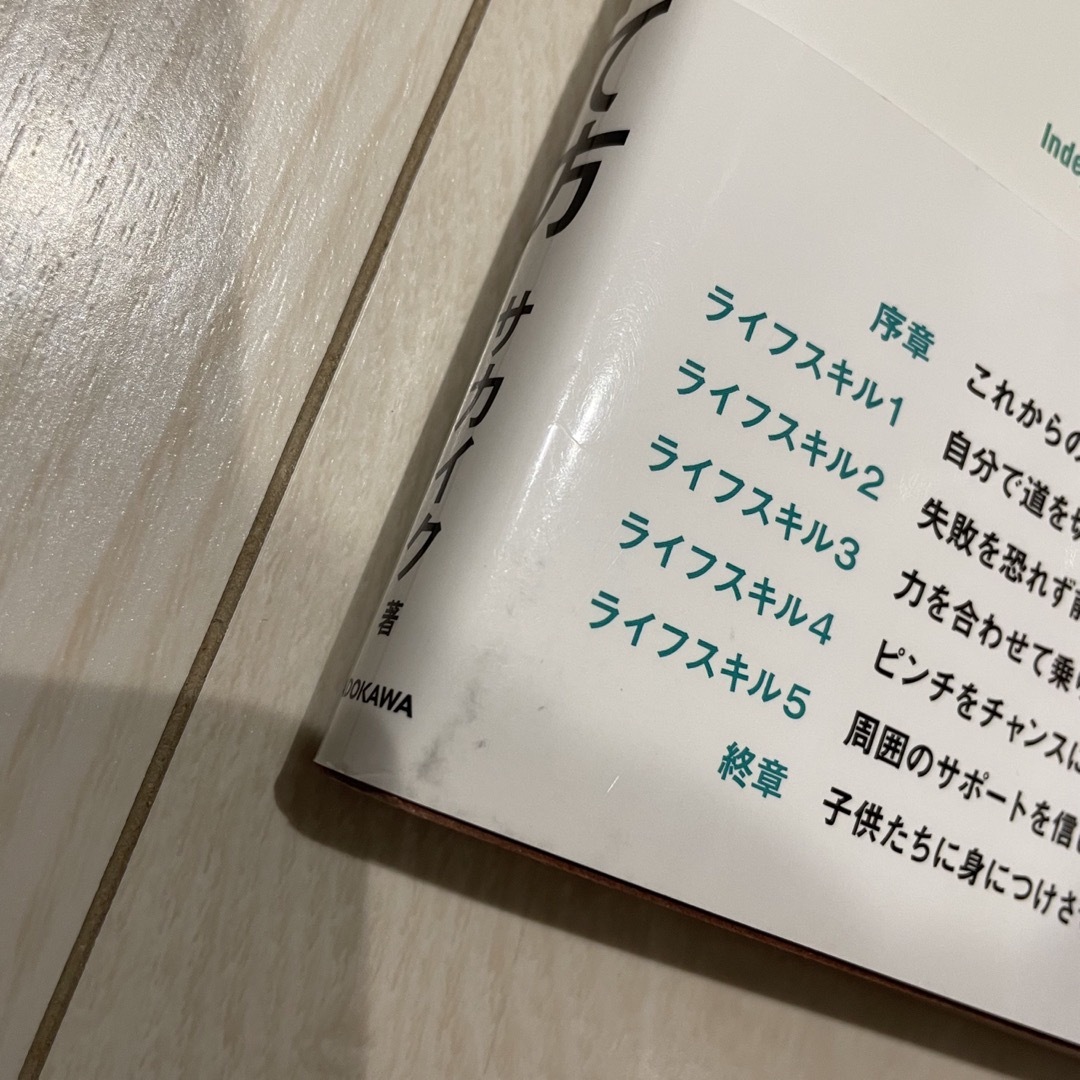 て方
サカイク
著
DOKAWA
Inde
序章 これからの
ライフスキル1 自分で道を切
ライフスキル2 失敗を恐れず前
ライフスキル3 力を合わせて乗り
ライフスキル4 ピンチをチャンスに
ライフスキル5 周囲のサポートを信じ
終章 子供たちに身につけさ